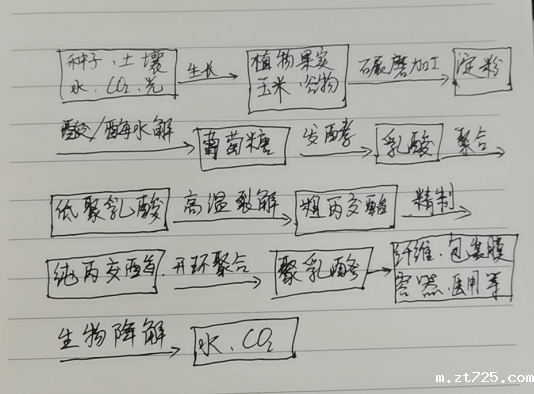 种子、土壤
水、CO₂、光
生长
植物果实
玉米、谷物
碾磨加工
淀粉
酸/酶水解
葡萄糖
发酵
乳酸
聚合
低聚乳酸
高温裂解
粗丙交酯
精制
纯丙交酯
开环聚合
聚乳酸
纤维、包装膜
容器、医用等
生物降解
水、CO₂
m.zt725.com